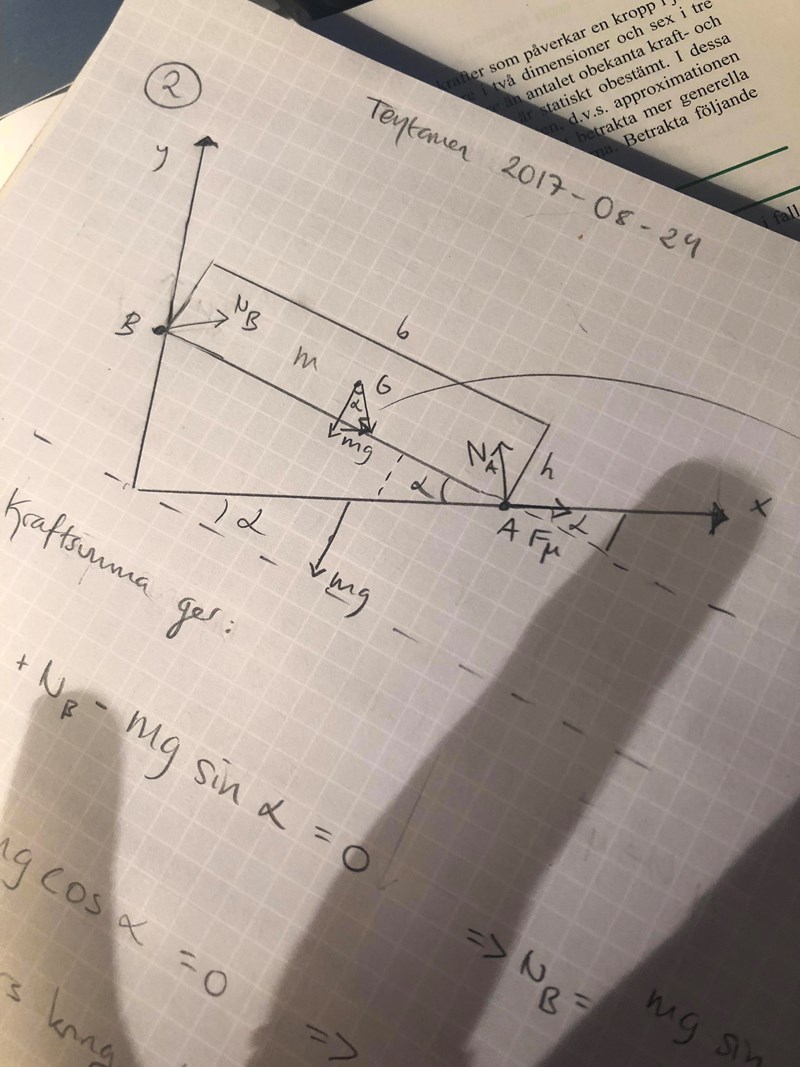 krafter som påverkar en kropp i j
i två dimensioner och sex i tre
än antalet obekanta kraft- och
är statiskt obestämt. I dessa
en, d.v.s. approximationen
betrakta mer generella
na. Betrakta följande
i fall
2
Tentamen 2017-08-24
y
B
N_B
b
m
G
α
mg
N_A
h
α
x
α
A F_μ
α
mg
Kraftsumma ger:
+ N_B - mg sin α = 0
mg cos α = 0
=> N_B = mg sin
kring
=>